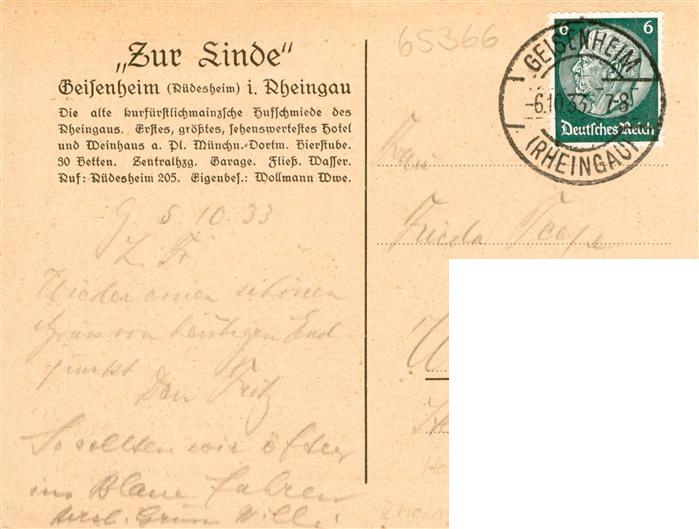 „Zur Linde“
Geisenheim (Rüdesheim) i. Rheingau
Die alte kurfürstlichmainzsche Hufschmiede des
Rheingaus. Erstes, größtes, sehenswertestes Hotel
und Weinhaus a. Pl. Münchn.-Dortm. Bierstube.
30 Betten. Zentralhzg. Garage. Fließ. Wasser.
Ruf: Rüdesheim 205. Eigenbes.: Wollmann Wwe.
G. 5.10.33
L. Fr.
Wieder einen schönen
Gruss von heutigen End-
punkt Dein Fritz
So sollten wir öfter
ins Blaue fahren
Herzl. Gruss Willi
65366
6 6
Deutsches Reich
GEISENHEIM
-6.10.33. 7-8
(RHEINGAU)
Frau
Frieda